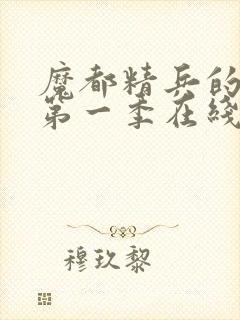 魔都精兵的
第一季在线
穆玖黎